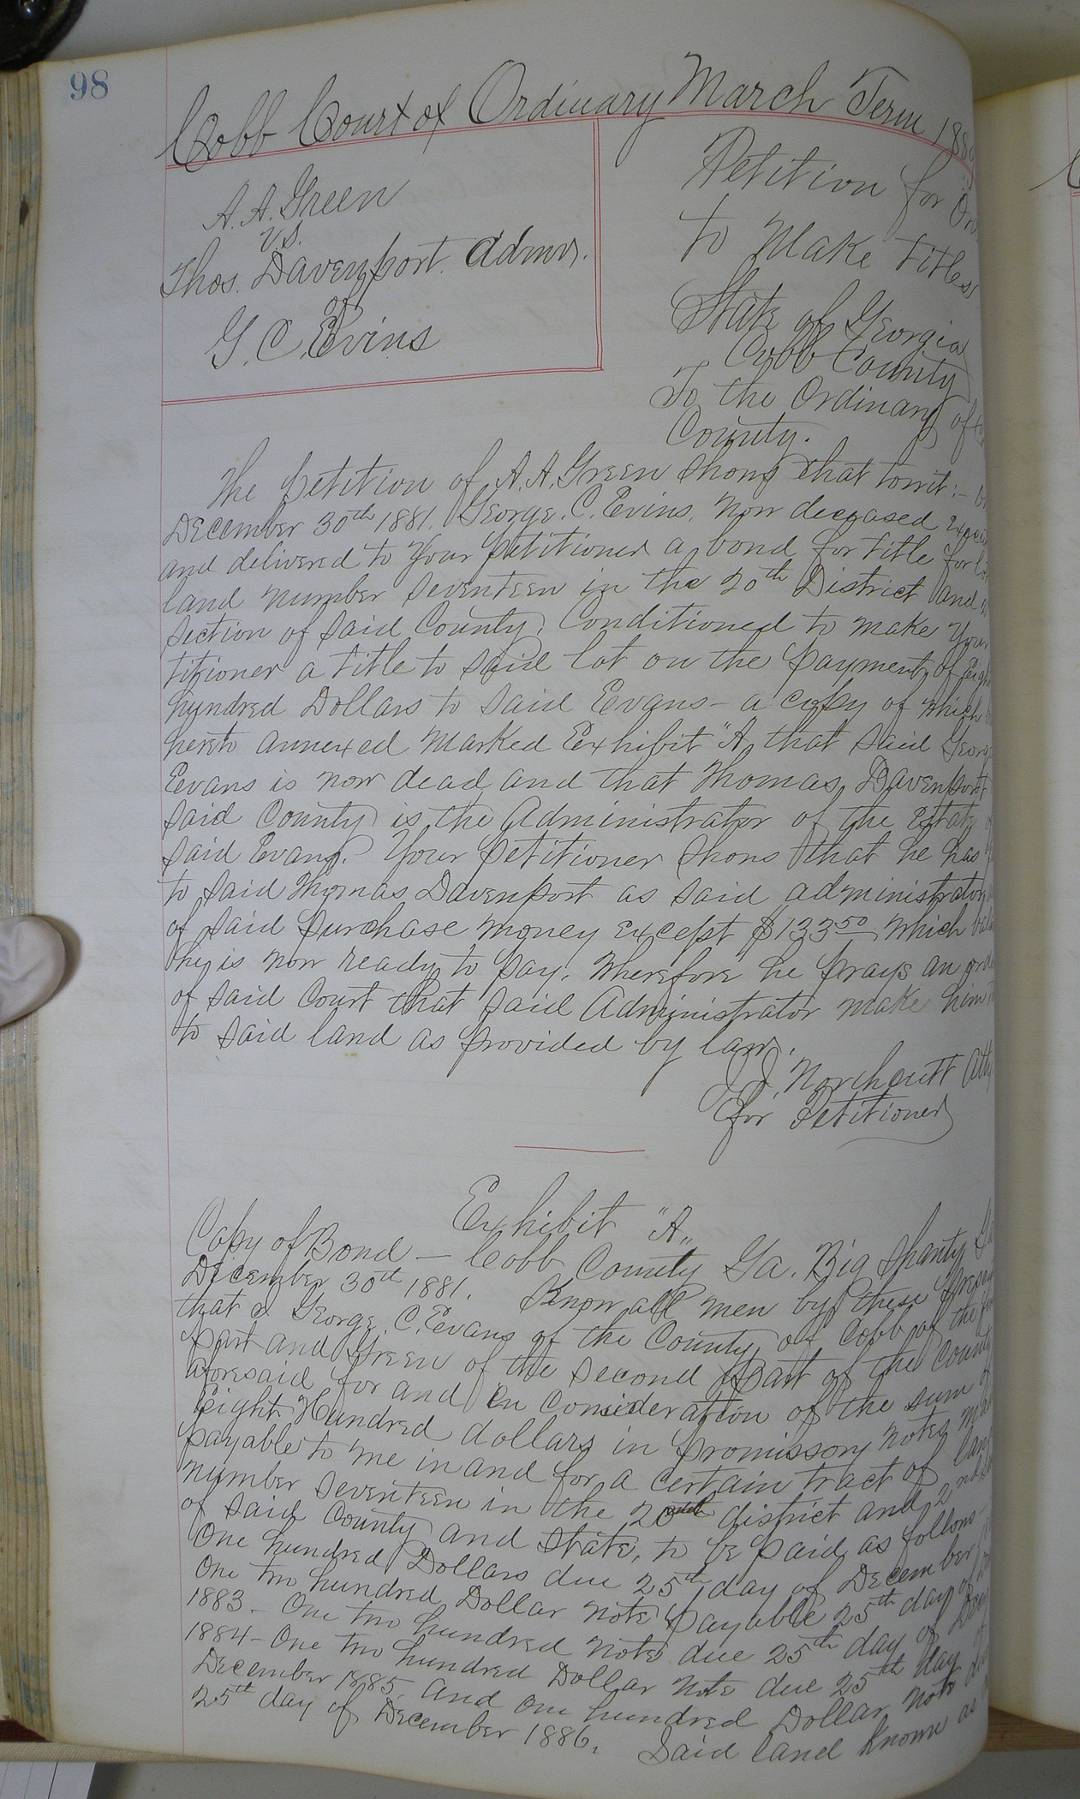 98
Cobb Court of Ordinary March Term 188
A. A. Green
vs.
Thos. Davenport Admr.
of
G. C. Evins
Petition for
to Make Titles
State of Georgia
Cobb County
To the Ordinary of
County.
The petition of A. A. Green shows that towit:-
December 30th 1881. George. C. Evins, now deceased
and delivered to Your petitioner a bond for title for
land number seventeen in the 20th District and
section of said County. Conditioned to make Your
titioner a title to said lot on the payment of
hundred Dollars to said Evans - a copy of which
hereto annexed Marked Exhibit "A, that said
Evans is now dead and that Thomas, Davenport
said County is the Administrator of the Estate
said Evans. Your petitioner shows that he has
to said Thomas Davenport as said administrator
of said purchase money except $133 50 which
he is now ready to pay. Wherefore he prays an
of said Court that said Administrator make him
to said land as provided by law.
J. J. Northcutt
for Petitioner
Exhibit "A,,
Copy of Bond - Cobb County Ga. Big Shanty
December 30th 1881. Know all men by these
that I George C. Evans of the County of Cobb of the
part and Green of the second part of the County
aforesaid for and in consideration of the sum
Eight Hundred dollars in promissory notes
payable to me in and for a certain tract of
number seventeen in the 20 district and 2nd
of said County and State, to be paid as follows
One hundred Dollars due 25th day of December
One two hundred Dollar note payable 25th day of
1883 - One two hundred note due 25th day of
1884 - One two hundred Dollar note due 25th day
December 1885. and one hundred Dollar note
25th day of December 1886. Said land known as